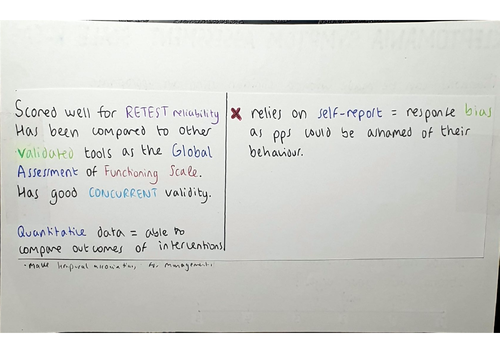 Scored well for RETEST reliability
Has been compared to other
validated tools as the Global
Assessment of Functioning Scale.
Has good CONCURRENT validity.
Quantitative data = able to
compare outcomes of interventions
x relies on self-report = response bias
as pps could be ashamed of their
behaviour.